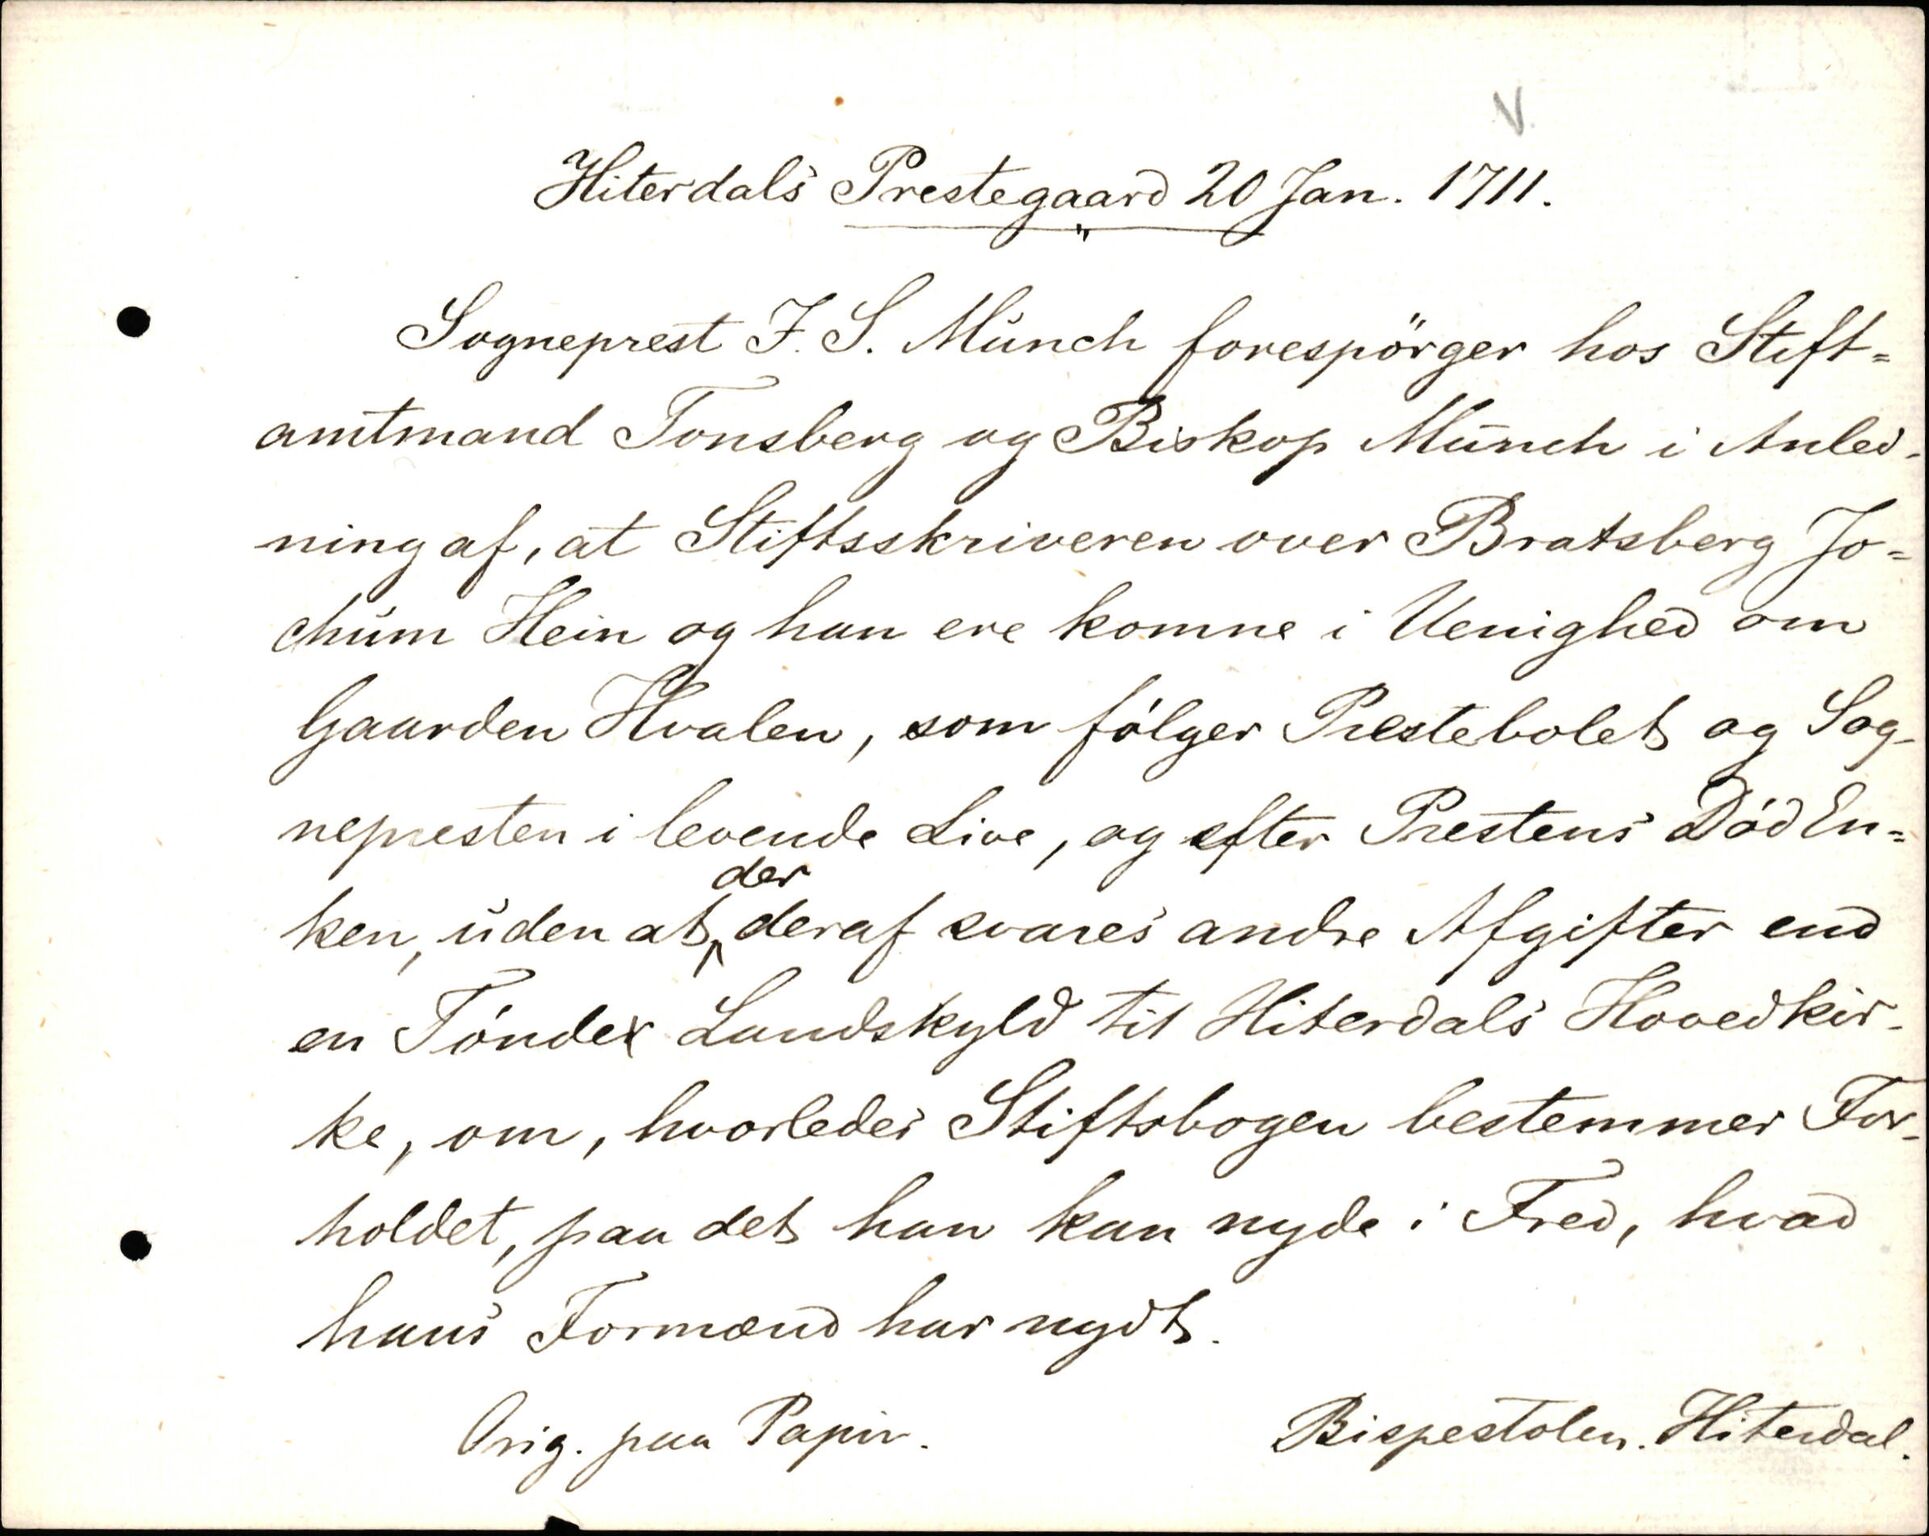 V.
Hiterdals Prestegaard 20 Jan. 1711.
Sogneprest J. S. Munch forespörger hos Stift=
amtmand Tonsberg og Biskop Munch i Anled-
ning af, at Stiftsskriveren over Bratsberg Jo=
chum Hein og han ere komne i Uenighed om
Gaarden Hvalen, som fölger Prestebolet og Sog-
nepresten i levende Live, og efter Prestens Död En=
ken, uden at der deraf svares andre Afgifter end
en Tönde Landskyld til Hiterdals Hovedkir-
ke, om, hvorledes Stiftsbogen bestemmer For-
holdet, paa det han kan nyde i Fred, hvad
hans Formænd har nydt.
Orig. paa Papir. Bispestolen. Hiterdal.